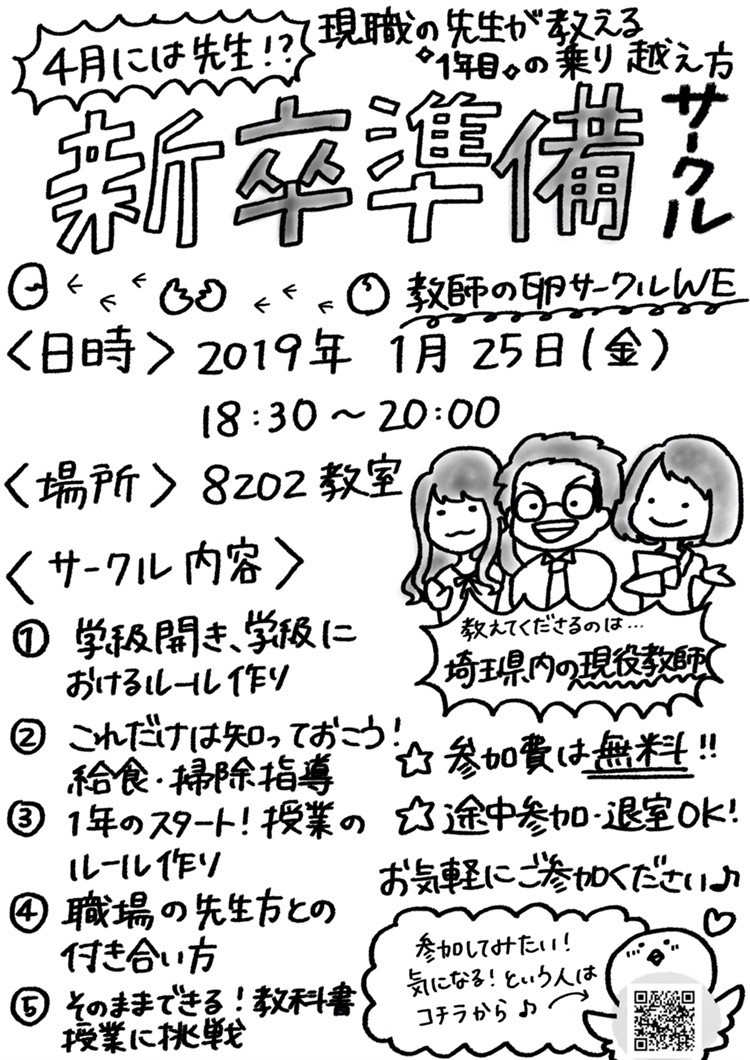 4月には先生!?
現職の先生が教える
1年目の乗り越え方
新卒準備
サークル
教師の卵サークルWE
〈日時〉 2019年 1月 25日(金)
18:30～20:00
〈場所〉 8202教室
〈サークル内容〉
① 学級開き、学級に
おけるルール作り
② これだけは知っておこう!
給食・掃除指導
③ 1年のスタート!授業の
ルール作り
④ 職場の先生方との
付き合い方
⑤ そのままできる!教科書
授業に挑戦
教えてくださるのは…
埼玉県内の現役教師
☆ 参加費は無料!!
☆ 途中参加・退室OK!
お気軽にご参加ください♪
参加してみたい!
気になる!という人は
コチラから♪